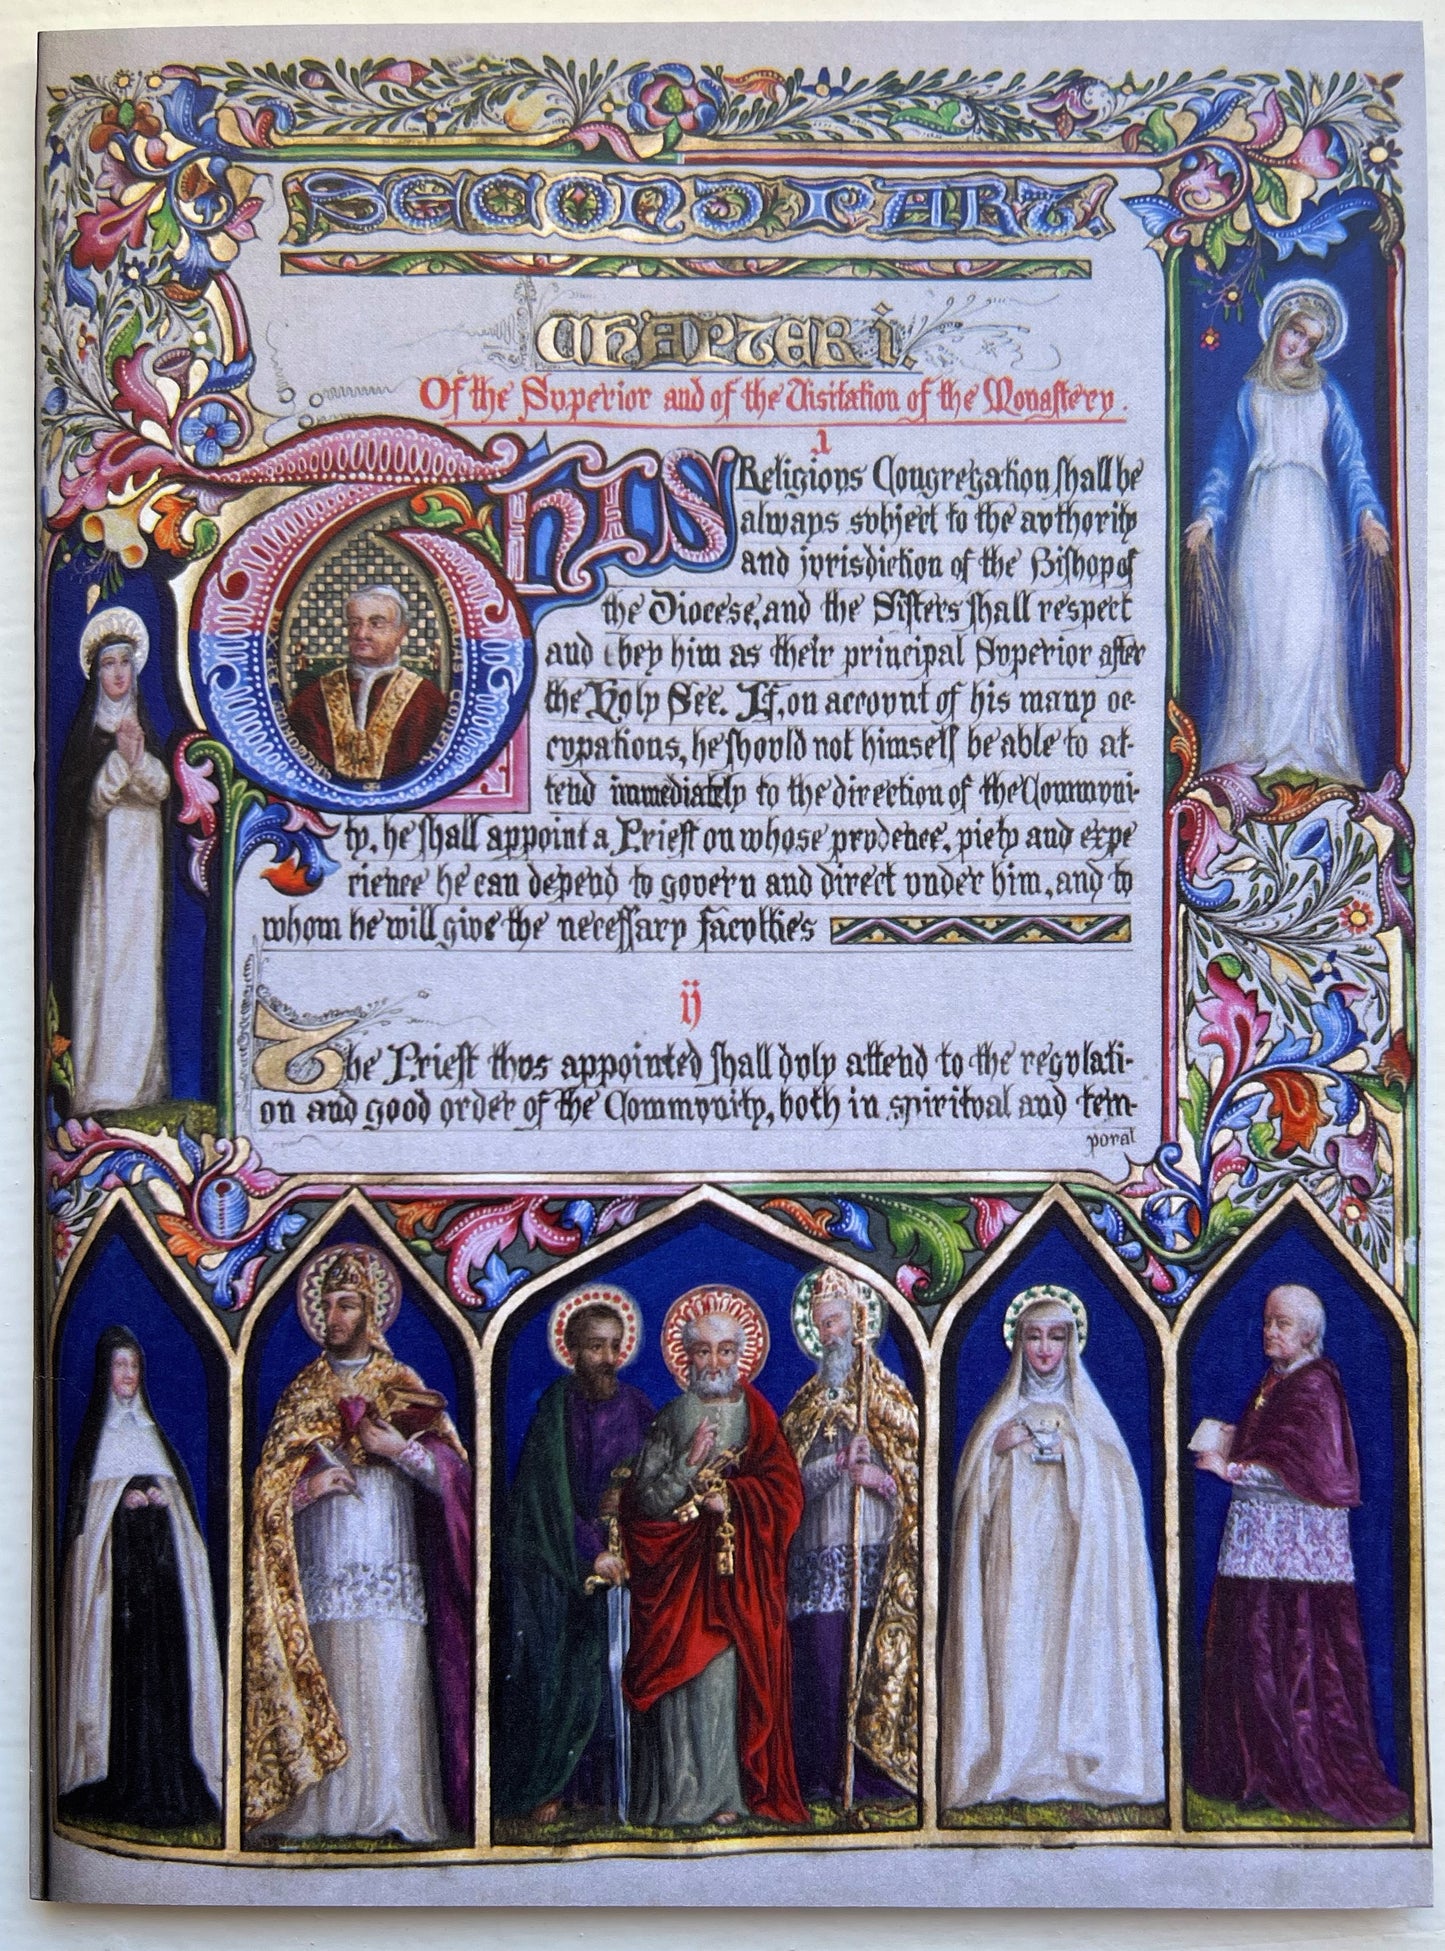 SECOND PART.
CHAPTER i.
Of the Superior and of the Visitation of the Monastery.
1
THIS Religious Congregation shall be
always subject to the authority
and jurisdiction of the Bishop of
the Diocese, and the Sisters shall respect
and obey him as their principal Superior after
the Holy See. If, on account of his many oc-
cupations, he should not himself be able to at-
tend immediately to the direction of the Communi-
ty, he shall appoint a Priest on whose prudence, piety and expe
rience he can depend to govern and direct under him, and to
whom he will give the necessary faculties
GREGORIUS
REGULAS CONFIR
ij
The Priest thus appointed shall duly attend to the regulati-
on and good order of the Community, both in spiritual and tem-
poral